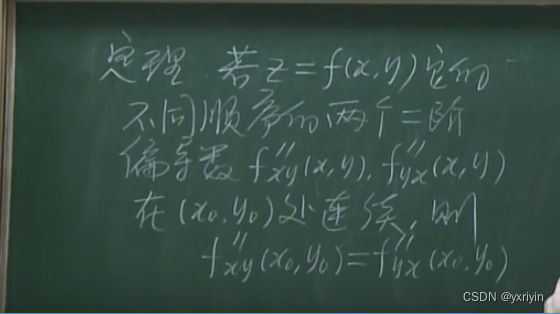 定理 若z=f(x,y)它的
不同顺序的两个二阶
偏导数f''xy(x,y),f''yx(x,y)
在(x0,y0)处连续,则
f''xy(x0,y0)=f''yx(x0,y0)
CSDN @yxriyin